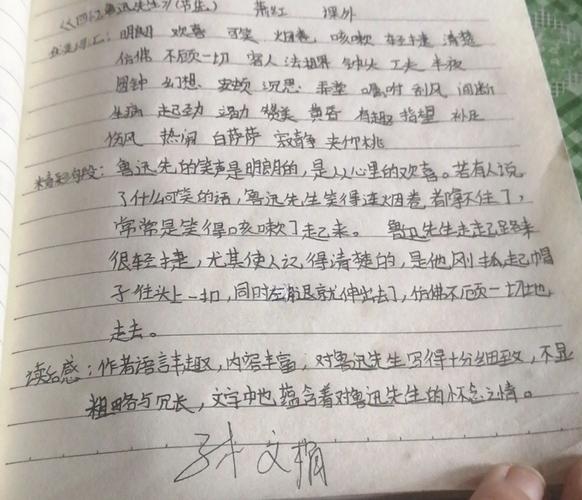 《回忆鲁迅先生》(节选) 萧红 课外
好词语汇：明朗 欢喜 可笑 烟卷 咳嗽 轻捷 清楚
仿佛 不顾一切 客人 法租界 钟头 工夫 半夜
圆钟 幻想 安顿 沉思 乖警 嘱咐 刮风 间断
生病 起劲 强劲 赞美 黄昏 有趣 指望 补足
伤风 热闹 白萨萨 寂静 夹竹桃
精彩句段：鲁迅先生的笑声是明朗的，是从心里的欢喜。若有人说
了什么可笑的话，鲁迅先生笑得连烟卷都拿不住了，
常常是笑得咳嗽了起来。 鲁迅先生走起路来
很轻捷，尤其使人记得清楚的，是他刚抓起帽
子往头上一扣，同时左腿就伸出去了，仿佛不顾一切地
走去。
读后感：作者语言丰趣，内容丰富，对鲁迅先生写得十分细致，不显
粗略与冗长，文字中也蕴含着对鲁迅先生的怀念之情。
孙文娟